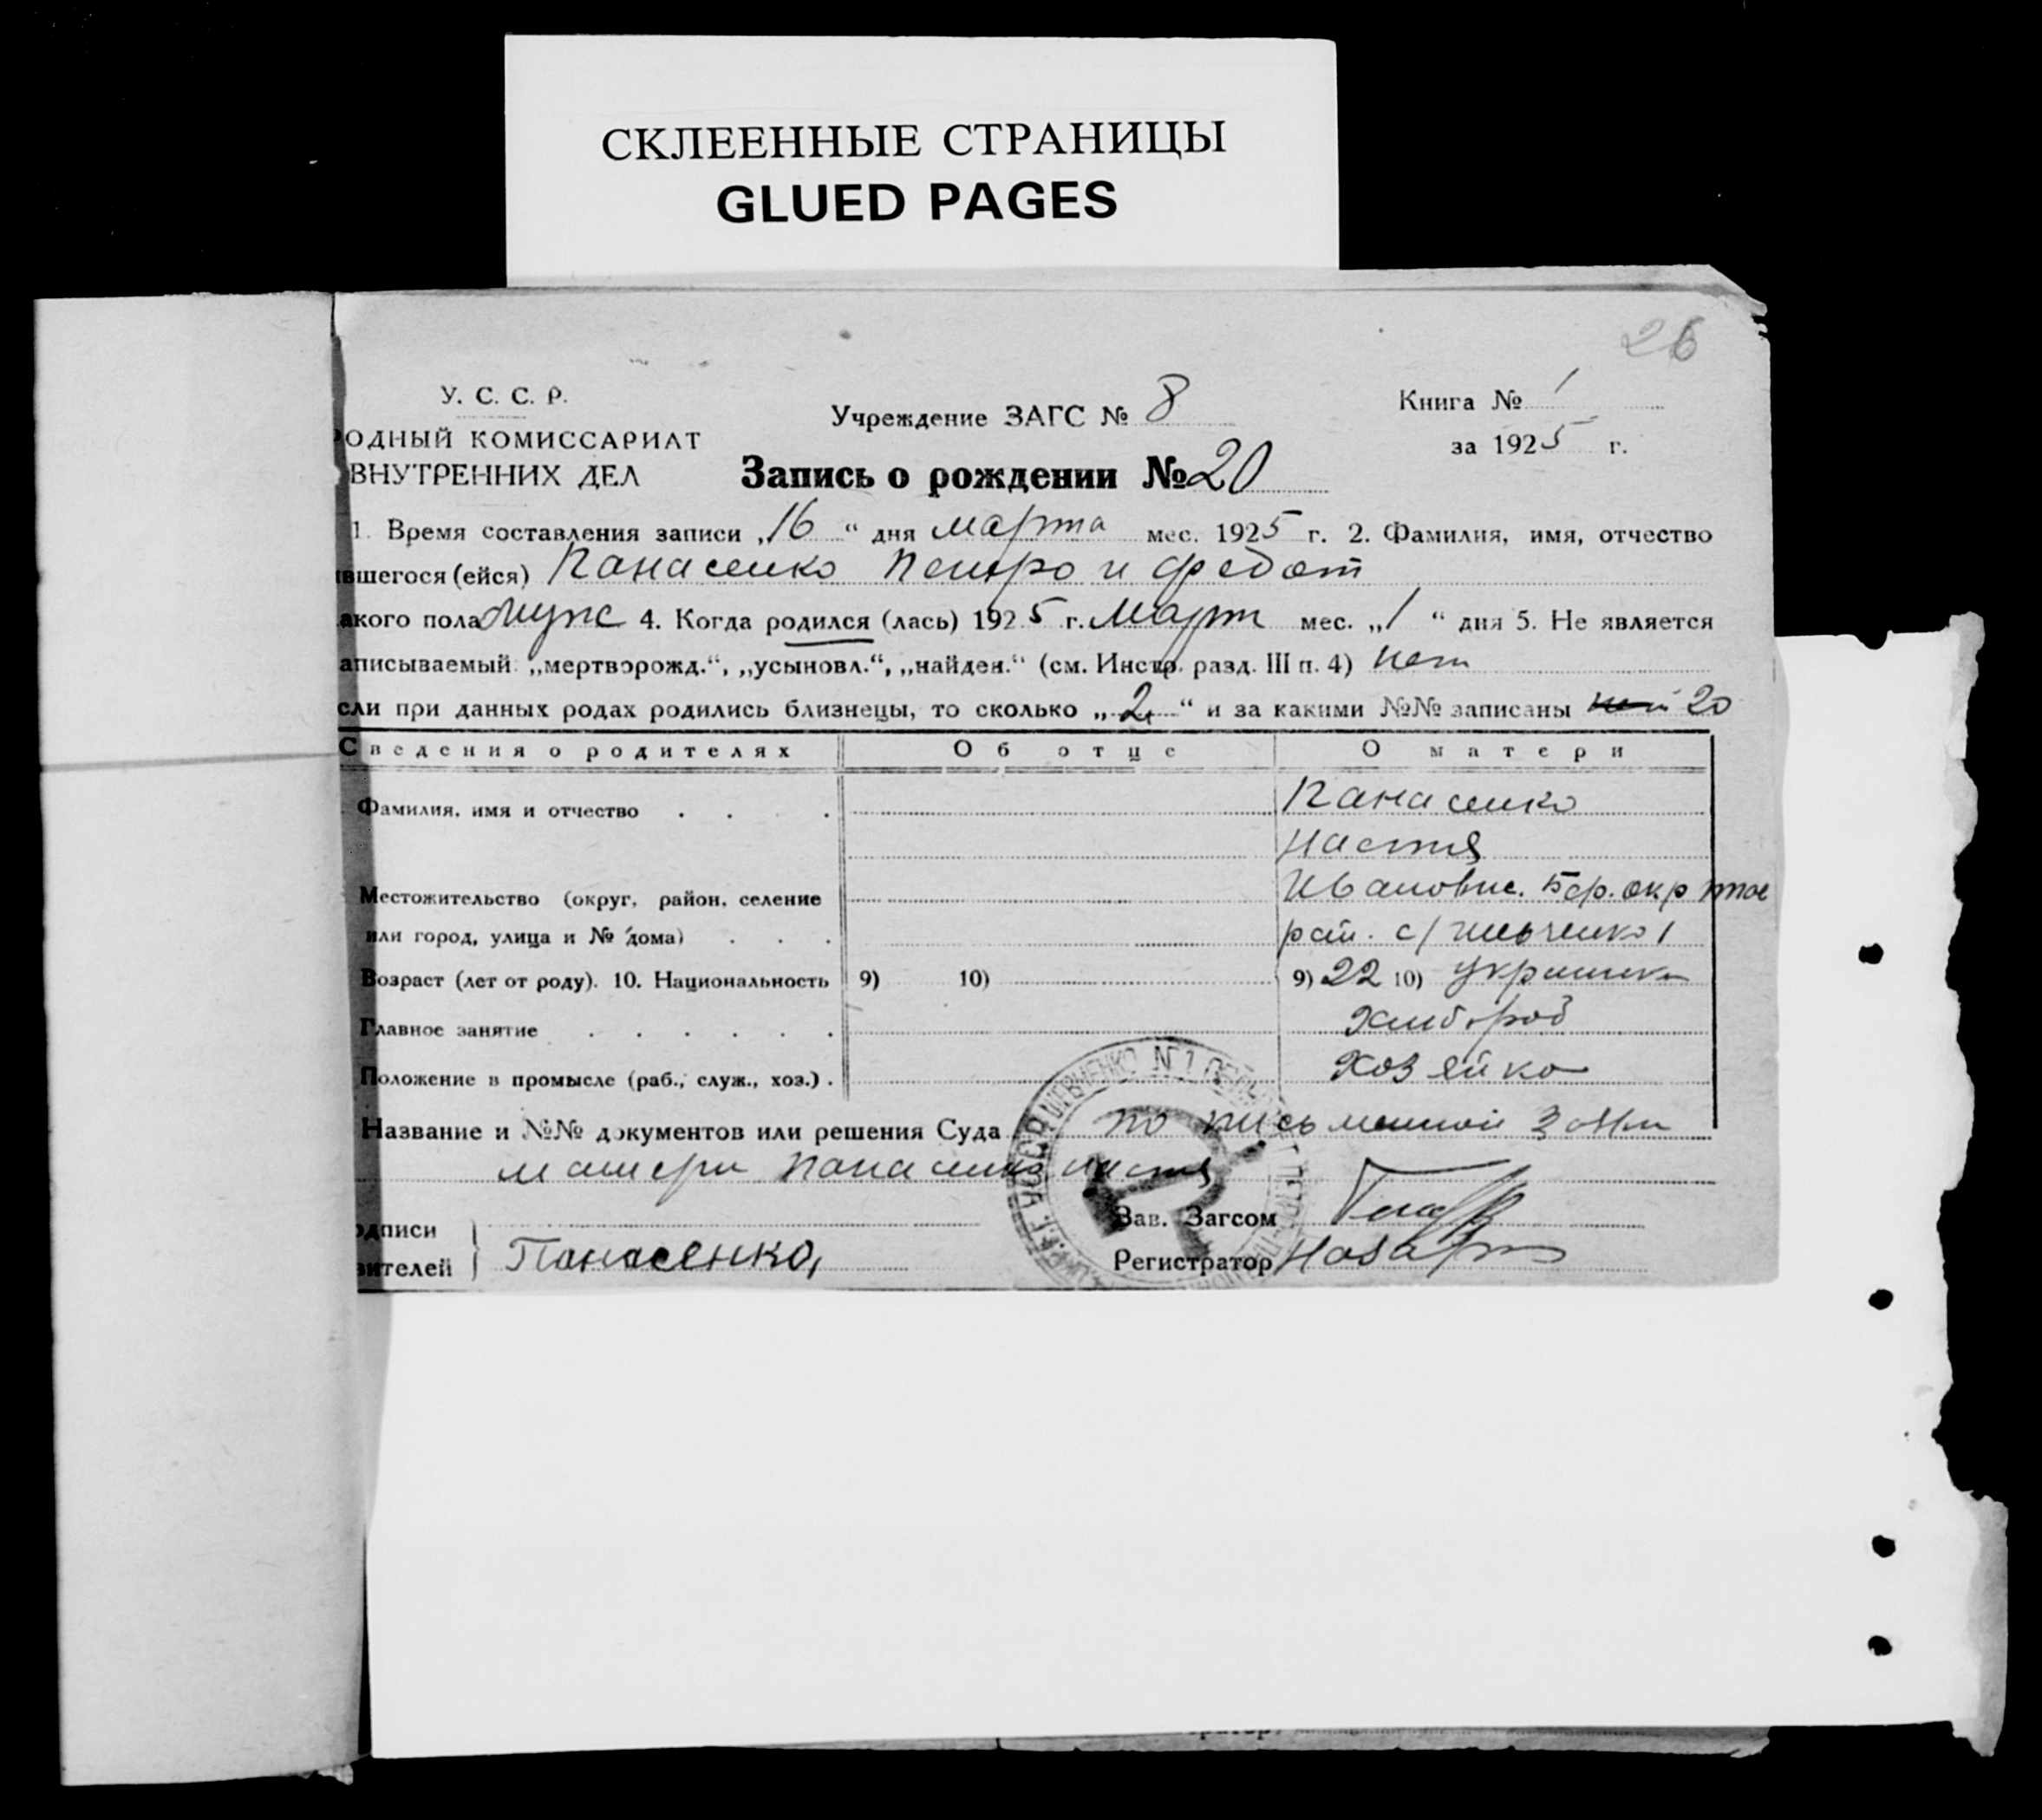 СКЛЕЕННЫЕ СТРАНИЦЫ
GLUED PAGES
26
У. С. С. Р.
Учреждение ЗАГС № 8
Книга № 1
РОДНЫЙ КОМИССАРИАТ
за 1925 г.
ВНУТРЕННИХ ДЕЛ
Запись о рождении № 20
1. Время составления записи „16“ дня марта мес. 1925 г. 2. Фамилия, имя, отчество
вшегося (ейся) Панасенко Петро и Федот
акого пола муж 4. Когда родился (лась) 1925 г. Март мес. „1“ дня 5. Не является
аписываемый „мертворожд.“, „усыновл.“, „найден.“ (см. Инстр. разд. III п. 4) нет
сли при данных родах родились близнецы, то сколько „2“ и за какими №№ записаны 20
Сведения о родителях Об отце О матери
Фамилия, имя и отчество . . . . Панасенко
Настя
Местожительство (округ, район, селение Ивановна. Бер. окр
или город, улица и № дома) . . . рай. с/
Возраст (лет от роду). 10. Национальность 9) 10) 9) 22 10) украинка
Главное занятие . . . . . .
Положение в промысле (раб., служ., хоз.) . хозяйка
Название и №№ документов или решения Суда по письменной
матери Панасенко Настя
дписи
Зав. Загсом
вителей Панасенко,
Регистратор